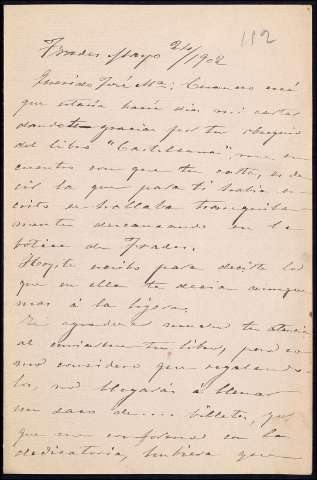 112
Frades Mayo 24/1902
Querido José Mª; Cuando creí
que estaría hacía días mi carta
dandote gracias por tu obsequio
del libro "Castellana", me en
cuentro con que tu carta, es de
cir la que para ti había es
crito se hallaba tranquila
mente descansando en la
botica de Frades.
Hoy te escribo para decirte lo
que en ella te decía aunque
mas á la ligera.
Mi agradezco mucho tu atencion
al enviarme tu libro, pero co
mo considero que regalando
los, no llegarás á llenar
un saco de.... billetes, por
que me conformo con la
dedicatoria, hubiera que